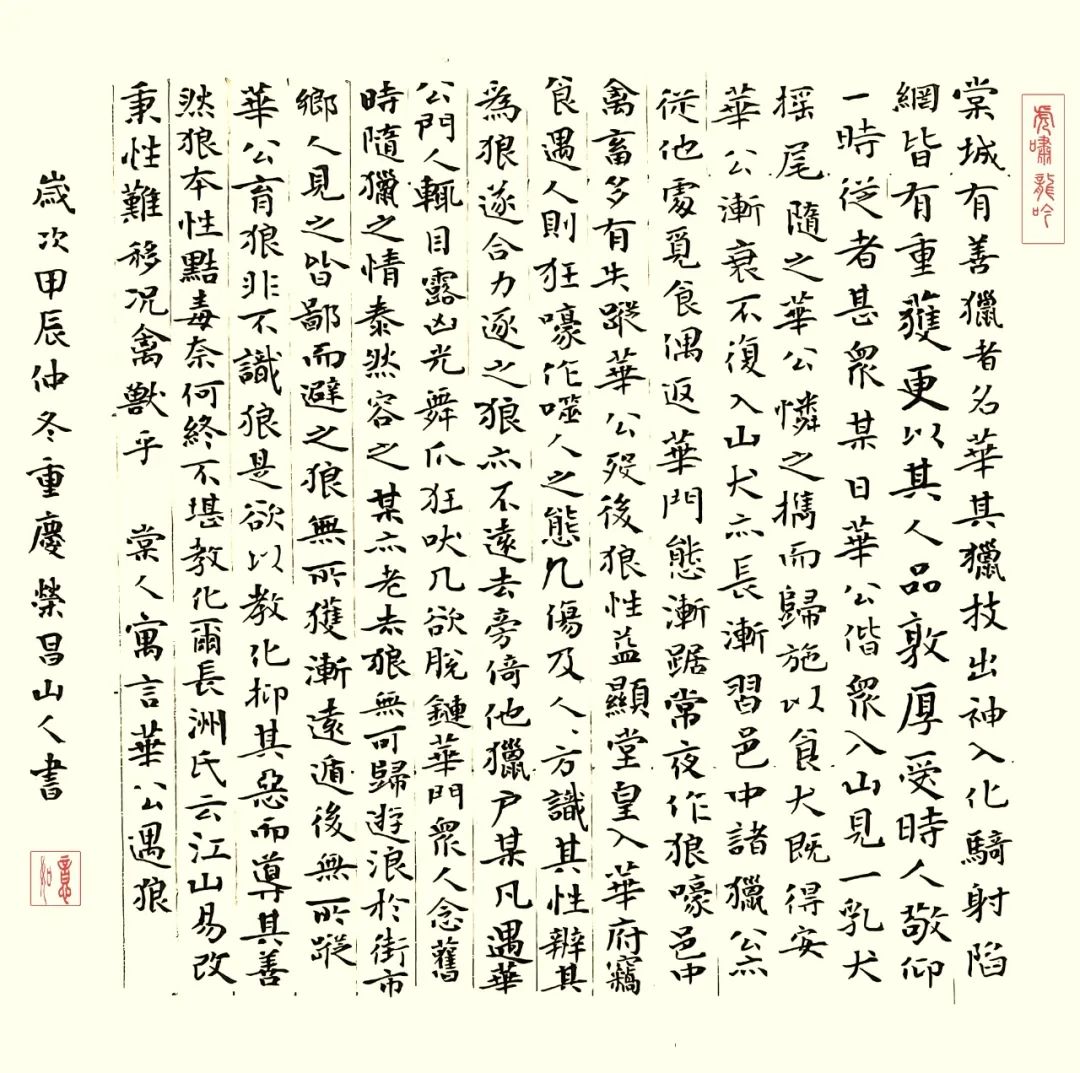 虎嘯龍吟
棠城有善獵者名華其獵技出神入化騎射陷
網皆有重獲更以其人品敦厚受時人敬仰
一時從者甚眾某日華公偕眾入山見一乳犬
摇尾隨之華公憐之携而歸施以食犬既得安
華公漸衰不復入山犬亦長漸習邑中諸獵公亦
從他處覓食偶返華門態漸踞常夜作狼嚎邑中
禽畜多有失蹤華公殁後狼性益顯堂皇入華府竊
食遇人則狂嚎作噬人之態几傷及人、方識其性辨其
為狼遂合力逐之狼亦不遠去旁倚他獵户某凡遇華
公門人輒目露凶光舞爪狂吠几欲脫鏈華門眾人念舊
時隨獵之情泰然容之某亦老去狼無可歸遊浪於街市
鄉人見之皆鄙而避之狼無所獲漸遠遁後無所蹤
華公育狼非不識狼是欲以教化抑其惡而導其善
然狼本性黠毒奈何終不堪教化爾長洲氏云江山易改
秉性難移况禽獸乎 棠人寓言華公遇狼
歲次甲辰仲冬重慶榮昌山人書
如意